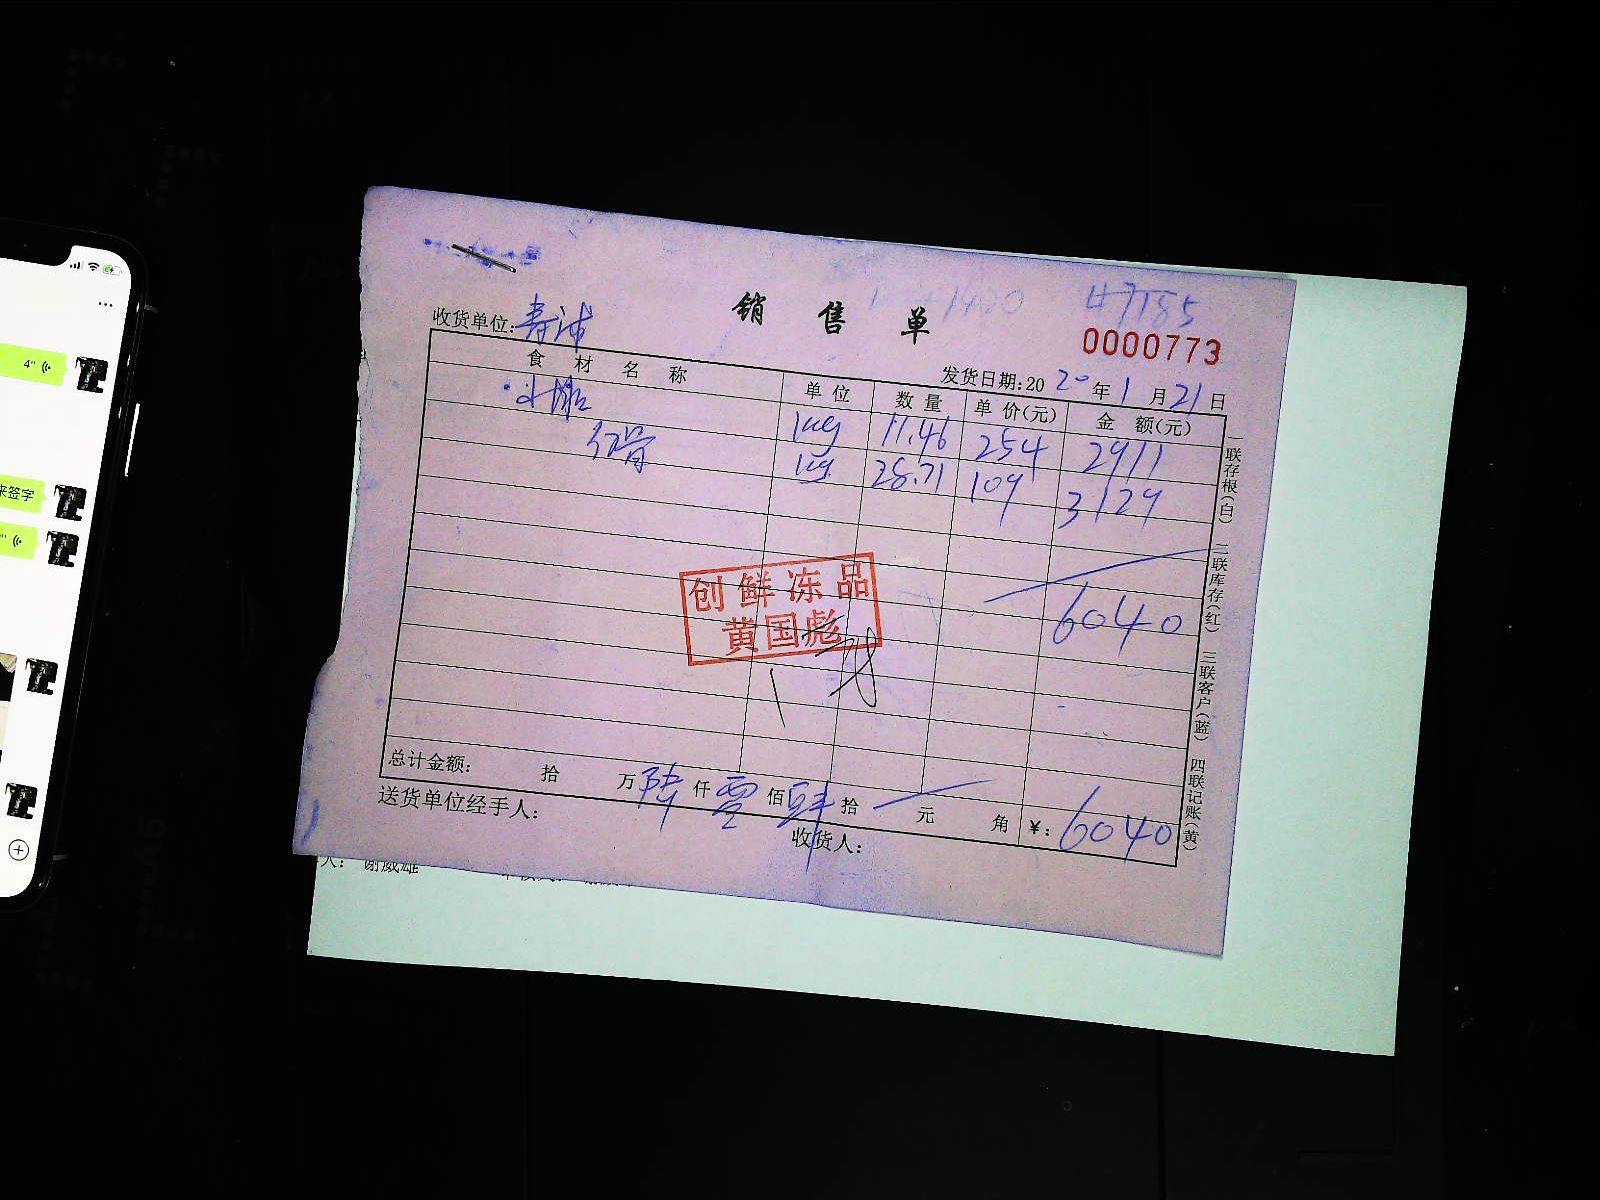 销售单
47185
0000773
收货单位:寿沛
发货日期:2020年1月21日
食材名称 单位 数量 单价(元) 金额(元)
kg 11.46 254 2911
kg 28.71 109 3129
6040
创鲜冻品
黄国彪
总计金额: 拾 万陆仟零佰肆拾 元 角 ¥:6040
送货单位经手人: 收货人:
一联存根(白) 二联库存(红) 三联客户(蓝) 四联记账(黄)
人: 谢威雄
4"
来签字